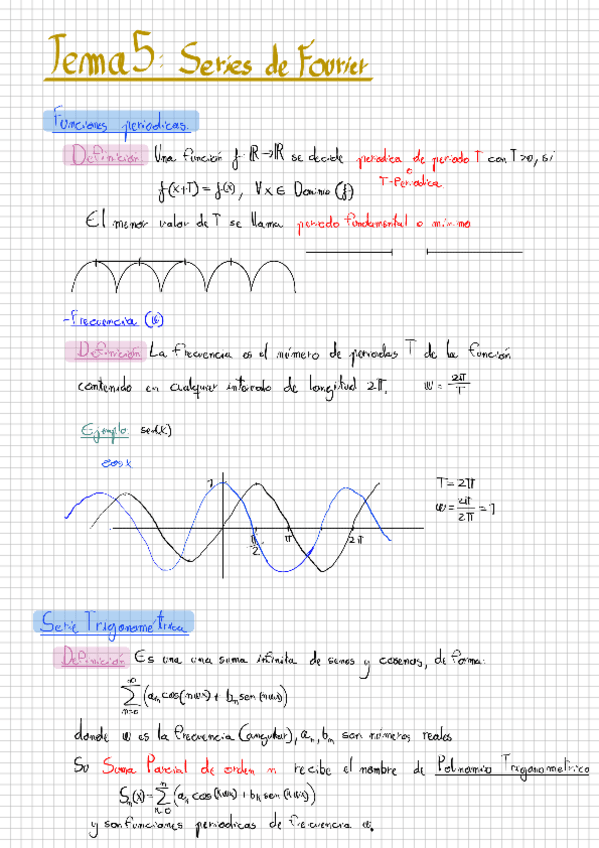 Tema 5: Series de Fourier
Funciones periodicas.
Definición Una función f: ℝ→ℝ se decide periodica de periodo T con T>0, si
o
T-Periodica
f(x+T) = f(x), ∀x ∈ Dominio (f)
El menor valor de T se llama periodo fundamental o mínimo
- Frecuencia (w)
Definición La frecuencia es el número de periodos T de la función
contenido en cualquier intervalo de longitud 2π. w = 2π/T
Ejemplo sen(x)
cos x
T = 2π
w = 2π/2π = 1
1
π/2 π 2π
Serie Trigonométrica
Definición Es una una suma infinita de senos y cosenos, de forma:
∞
∑ (aₙ cos(nwx) + bₙ sen(nwx))
n=0
donde w es la frecuencia (angular), aₙ, bₙ son números reales
Su Suma Parcial de orden n recibe el nombre de Polinomio Trigonometrico
Sₙ(x) = ∑ (aₖ cos(kwx) + bₖ sen(kwx))
y son funciones periodicas de frecuencia w.